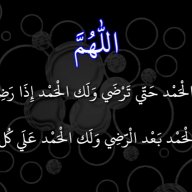 اللّٰهُمَّ
الْحَمْد حَتَّي تَرْضَي وَلَك الْحَمْد إِذَا
الْحَمْد بَعْد الْرِّضَي وَلَك الْحَمْد عَلَي